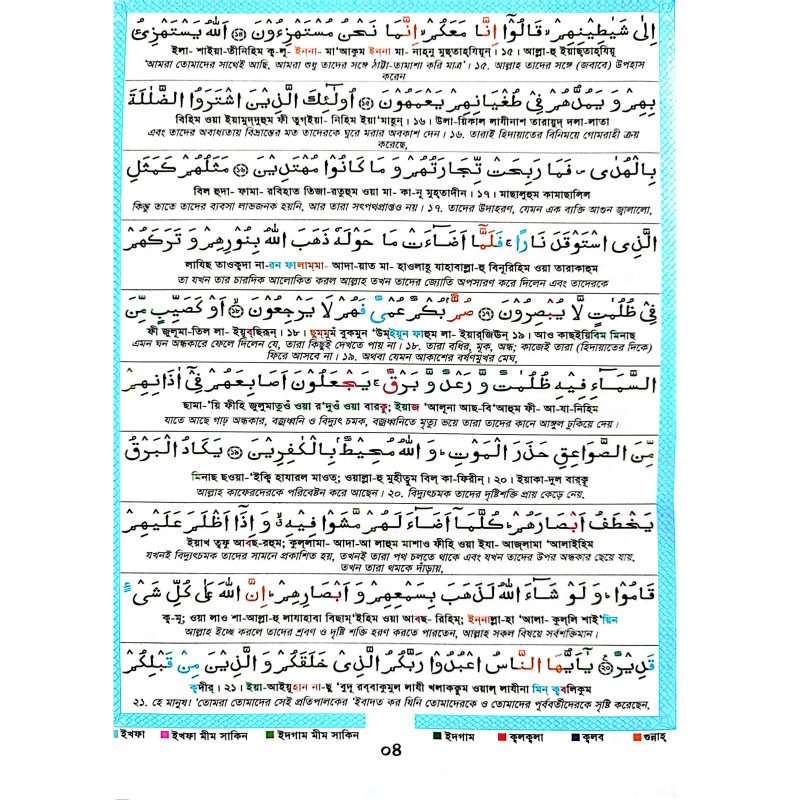 اِلٰى شَيٰطِيْنِهِمْ ۙ قَالُوْۤا اِنَّا مَعَكُمْ ۙ اِنَّمَا نَحْنُ مُسْتَهْزِءُوْنَ ﴿۱۴﴾ اَللّٰهُ يَسْتَهْزِئُ
ইলা- শাইয়া-তীনিহিম ক্বা-লূ- ইন্না- মা'আকুম ইন্না মা- নাহ্নু মুছতাহ্যিয়ূন্। ১৫। আল্লা-হু ইয়াছ্তাহ্যিয়ু
'আমরা তোমাদের সাথেই আছি, আমরা শুধু তাদের সঙ্গে ঠাট্টা-তামাশা করি মাত্র'। ১৫. আল্লাহ তাদের সঙ্গে (জবাবে) উপহাস
করেন
بِهِمْ وَ يَمُدُّهُمْ فِيْ طُغْيَانِهِمْ يَعْمَهُوْنَ ﴿۱۵﴾ اُولٰٓئِكَ الَّذِيْنَ اشْتَرَوُا الضَّلٰلَةَ
বিহিম ওয়া ইয়ামুদ্দুহুম ফী তুগ্ইয়া- নিহিম ইয়া'মাহূন্। ১৬। উলা-য়িকাল লাযীনাশ তারাযুদ্ দলা-লাতা
এবং তাদের অবাধ্যতায় বিভ্রান্তের মত তাদেরকে ঘুরে মরার অবকাশ দেন। ১৬. তারাই হিদায়াতের বিনিময়ে গোমরাহী ক্রয়
করেছে,
بِالْهُدٰى ۪ فَمَا رَبِحَتْ تِّجَارَتُهُمْ وَ مَا كَانُوْا مُهْتَدِيْنَ ﴿۱۶﴾ مَثَلُهُمْ كَمَثَلِ
বিল হুদা- ফামা- রবিহাত তিজা-রতুহুম ওয়া মা- কা-নূ মুহ্তাদীন। ১৭। মাছালুহুম কামাছালিল
কিন্তু তাতে তাদের ব্যবসা লাভজনক হয়নি, আর তারা সৎপথপ্রাপ্তও নয়। ১৭. তাদের উদাহরণ, যেমন এক ব্যক্তি আগুন জ্বালালো,
الَّذِى اسْتَوْقَدَ نَارًا ۚ فَلَمَّاۤ اَضَآءَتْ مَا حَوْلَهٗ ذَهَبَ اللّٰهُ بِنُوْرِهِمْ وَ تَرَكَهُمْ
লাযিছ তাওক্বদা না-রন ফালাম্মা- আদা-য়াত মা- হাওলাহূ যাহাবাল্লা-হু বিনূরিহিম ওয়া তারাকাহুম
তা যখন তার চারদিক আলোকিত করল আল্লাহ তখন তাদের জ্যোতি অপসারণ করে দিলেন এবং তাদেরকে
فِيْ ظُلُمٰتٍ لَّا يُبْصِرُوْنَ ﴿۱۷﴾ صُمٌّۢ بُكْمٌ عُمْيٌ فَهُمْ لَا يَرْجِعُوْنَ ﴿۱۸﴾ اَوْ كَصَيِّبٍ مِّنَ
ফী জুলুমা-তিল লা- ইয়ুব্ছিরূন্। ১৮। ছুম্মুম বুকমুন 'উম্ইয়ুন ফাহুম লা- ইয়ার্জিঊন্ ১৯। আও কাছইয়িবিম মিনাছ
এমন ঘন অন্ধকারে ফেলে দিলেন যে, তারা কিছুই দেখতে পায় না। ১৮. তারা বধির, মূক, অন্ধ; কাজেই তারা (হিদায়াতের দিকে)
ফিরে আসবে না। ১৯. অথবা যেমন আকাশের বর্ষণমুখর মেঘ,
السَّمَآءِ فِيْهِ ظُلُمٰتٌ وَّ رَعْدٌ وَّ بَرْقٌ ۚ يَجْعَلُوْنَ اَصَابِعَهُمْ فِيْۤ اٰذَانِهِمْ
ছামা-'য়ি ফীহি জুলুমাতুওঁ ওয়া র'দুওঁ ওয়া বারক্বু; ইয়াজ্ 'আলূনা আছ-বি'আহুম ফী- আ-যা-নিহিম
যাতে আছে গাঢ় অন্ধকার, বজ্রধ্বনি ও বিদ্যুৎ চমক, বজ্রধ্বনিতে মৃত্যু ভয়ে তারা তাদের কানে আঙ্গুল ঢুকিয়ে দেয়।
مِّنَ الصَّوَاعِقِ حَذَرَ الْمَوْتِ ؕ وَ اللّٰهُ مُحِيْطٌۢ بِالْكٰفِرِيْنَ ﴿۱۹﴾ يَكَادُ الْبَرْقُ
মিনাছ ছওয়া-'ইক্বি হাযারল মাওত; ওয়াল্লা-হু মুহীতুম বিল্ কা-ফিরীন্। ২০। ইয়াকা-দুল বার্কু
আল্লাহ কাফেরদেরকে পরিবেষ্টন করে আছেন। ২০. বিদ্যুৎচমক তাদের দৃষ্টিশক্তি প্রায় কেড়ে নেয়.
يَخْطَفُ اَبْصَارَهُمْ ؕ كُلَّمَاۤ اَضَآءَ لَهُمْ مَّشَوْا فِيْهِ ۙ وَ اِذَاۤ اَظْلَمَ عَلَيْهِمْ
ইয়াখ তৃফু আবছ-রহুম; কুল্লামা- আদা-আ লাহুম মাশাও ফীহি ওয়া ইযা- আজ্লামা 'আলাইহিম
যখনই বিদ্যুৎচমক তাদের সামনে প্রকাশিত হয়, তখনই তারা পথ চলতে থাকে এবং যখন তাদের উপর অন্ধকার ছেয়ে যায়.
তখন তারা থমকে দাঁড়ায়.
قَامُوْا ؕ وَ لَوْ شَآءَ اللّٰهُ لَذَهَبَ بِسَمْعِهِمْ وَ اَبْصَارِهِمْ ؕ اِنَّ اللّٰهَ عَلٰى كُلِّ شَيْءٍ
ক্ব-মূ; ওয়া লাও শা-আল্লা-হু লাযাহাবা বিছাম্'ইহিম ওয়া আবছ- রিহিম্; ইন্নাল্লা-হা 'আলা- কুল্লি শাই'য়িন
আল্লাহ ইচ্ছে করলে তাদের শ্রবণ ও দৃষ্টি শক্তি হরণ করতে পারতেন, আল্লাহ সকল বিষয়ে সর্বশক্তিমান।
قَدِيْرٌ ﴿۲۰﴾ يٰۤاَيُّهَا النَّاسُ اعْبُدُوْا رَبَّكُمُ الَّذِيْ خَلَقَكُمْ وَ الَّذِيْنَ مِنْ قَبْلِكُمْ
ক্বদীর্। ২১। ইয়া-আইয়ুহান না-ছু 'বুদূ রব্বাকুমুল লাযী খলাকক্বুম ওয়াল্ লাযীনা মিন্ ক্ববলিকুম
২১. হে মানুষ! 'তোমরা তোমাদের সেই প্রতিপালকের 'ইবাদত কর যিনি তোমাদেরকে ও তোমাদের পূর্ববর্তীদেরকে সৃষ্টি করেছেন,
ইখফা ইখফা মীম সাকিন ইদগাম মীম সাকিন ইদগাম ক্বলক্বলা ক্বলব গুন্নাহ্
০৪